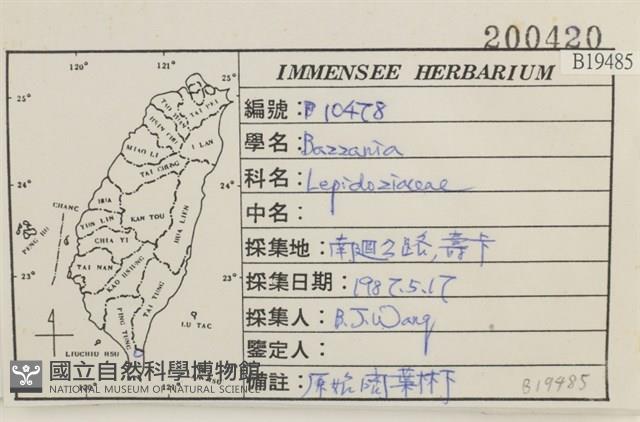 200420
B19485
IMMENSEE HERBARIUM
編號: P10478
學名: Bazzania
科名: Lepidoziaceae
中名:
採集地: 南迴公路,壽卡
採集日期: 1987.5.17
採集人: B.J.Wang
鑒定人:
備註: 原始闊葉林下
B19485
120°
121°
25°
25°
TAI PEI
I LAN
MIAO LI
TAI CHUNG
24°
24°
CHANG
HUA
NAN TOU
HUA LIEN
YUN LIN
PENG HU
CHIA YI
TAI NAN
KAO HSIUNG
TAI TUNG
23°
23°
PING TUNG
LU TAO
LIUCHIU HSU
120°
121°
國立自然科學博物館
NATIONAL MUSEUM OF NATURAL SCIENCE